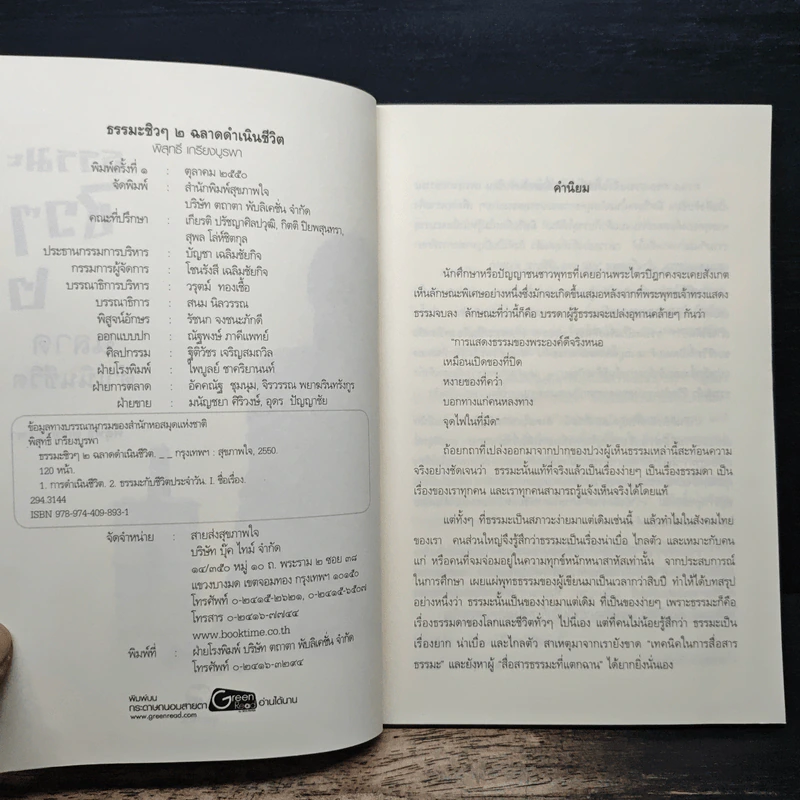 ธรรมะชิวๆ ๒ ฉลาดดำเนินชีวิต
พิสุทธิ์ เกรียงบูรพา
พิมพ์ครั้งที่ ๑ : ตุลาคม ๒๕๕๐
จัดพิมพ์ : สำนักพิมพ์สุขภาพใจ
บริษัท ตถาตา พับลิเคชั่น จำกัด
คณะที่ปรึกษา : เกียรติ ปรัชญาศิลปวุฒิ, กิตติ ปิยพสุนทรา,
สุพล โล่ห์ชิตกุล
ประธานกรรมการบริหาร : บัญชา เฉลิมชัยกิจ
กรรมการผู้จัดการ : โชนรังสี เฉลิมชัยกิจ
บรรณาธิการบริหาร : วรุตม์ ทองเชื้อ
บรรณาธิการ : สนม นิลวรรณ
พิสูจน์อักษร : รัชนก จงชนะภักดี
ออกแบบปก : ณัฐพงษ์ ภาคีแพทย์
ศิลปกรรม : ฐิติวัชร เจริญสมถวิล
ฝ่ายโรงพิมพ์ : ไพบูลย์ ชาคริยานนท์
ฝ่ายการตลาด : อัคคณัฐ ชุมนุม, จิรวรรณ พยาฆวินทรังกูร
ฝ่ายขาย : มนัญชยา ศิริวงษ์, อุดร ปัญญาชัย
ข้อมูลทางบรรณานุกรมของสำนักหอสมุดแห่งชาติ
พิสุทธิ์ เกรียงบูรพา
ธรรมะชิวๆ ๒ ฉลาดดำเนินชีวิต. _ _ กรุงเทพฯ : สุขภาพใจ, 2550.
120 หน้า.
1. การดำเนินชีวิต. 2. ธรรมะกับชีวิตประจำวัน. I. ชื่อเรื่อง.
294.3144
ISBN 978-974-409-893-1
จัดจำหน่าย : สายส่งสุขภาพใจ
บริษัท บุ๊ค ไทม์ จำกัด
๑๔/๓๕๐ หมู่ ๑๐ ถ. พระราม ๒ ซอย ๓๘
แขวงบางมด เขตจอมทอง กรุงเทพฯ ๑๐๑๕๐
โทรศัพท์ ๐-๒๔๑๕-๒๖๒๑, ๐-๒๔๑๕-๖๕๐๗
โทรสาร ๐-๒๔๑๖-๗๗๔๔
www.booktime.co.th
พิมพ์ที่ : ฝ่ายโรงพิมพ์ บริษัท ตถาตา พับลิเคชั่น จำกัด
โทรศัพท์ ๐-๒๔๑๖-๓๒๙๔
พิมพ์บน
กระดาษถนอมสายตา Green Read อ่านได้นาน
www.greenread.com
คำนิยม
นักศึกษาหรือปัญญาชนชาวพุทธที่เคยอ่านพระไตรปิฎกคงจะเคยสังเกต
เห็นลักษณะพิเศษอย่างหนึ่งซึ่งมักจะเกิดขึ้นเสมอหลังจากที่พระพุทธเจ้าทรงแสดง
ธรรมจบลง ลักษณะที่ว่านี้ก็คือ บรรดาผู้รู้ธรรมจะเปล่งอุทานคล้ายๆ กันว่า
“การแสดงธรรมของพระองค์ดีจริงหนอ
เหมือนเปิดของที่ปิด
หงายของที่คว่ำ
บอกทางแก่คนหลงทาง
จุดไฟในที่มืด”
ถ้อยกถาที่เปล่งออกมาจากปากของปวงผู้เห็นธรรมเหล่านี้สะท้อนความ
จริงอย่างชัดเจนว่า ธรรมะนั้นแท้ที่จริงแล้วเป็นเรื่องง่ายๆ เป็นเรื่องธรรมดา เป็น
เรื่องของเราทุกคน และเราทุกคนสามารถรู้แจ้งเห็นจริงได้โดยแท้
แต่ทั้งๆ ที่ธรรมะเป็นสภาวะง่ายมาแต่เดิมเช่นนี้ แล้วทำไมในสังคมไทย
ของเรา คนส่วนใหญ่จึงรู้สึกว่าธรรมะเป็นเรื่องน่าเบื่อ ไกลตัว และเหมาะกับคน
แก่ หรือคนที่จมจ่อมอยู่ในความทุกข์หนักหนาสาหัสเท่านั้น จากประสบการณ์
ในการศึกษา เผยแผ่พุทธธรรมของผู้เขียนมาเป็นเวลากว่าสิบปี ทำให้ได้บทสรุป
อย่างหนึ่งว่า ธรรมะนั้นเป็นของง่ายมาแต่เดิม ที่เป็นของง่ายๆ เพราะธรรมะก็คือ
เรื่องธรรมดาของโลกและชีวิตทั่วๆ ไปนี่เอง แต่ที่คนไม่น้อยรู้สึกว่า ธรรมะเป็น
เรื่องยาก น่าเบื่อ และไกลตัว สาเหตุมาจากเรายังขาด “เทคนิคในการสื่อสาร
ธรรมะ” และยังหาผู้ “สื่อสารธรรมะที่แตกฉาน” ได้ยากยิ่งนั่นเอง